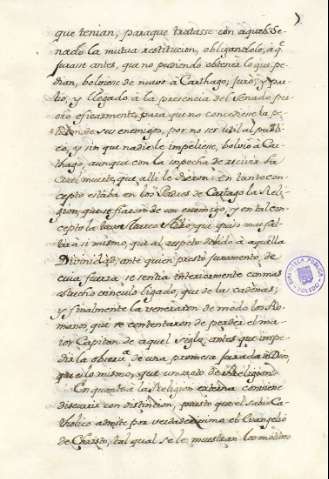 que tenian, paraque tratasse con aquel Se-
nado la mutua restitucion, obligandolo, à q̃
jurasse antes, que no pudiendo obtener lo que pe-
dian, bolviesse de nuevo à Carthago, juró, y par-
tió, y llegado à la presencia del Senado
oró eficazmente, para que no concediesse la
de sus enemigos, por no ser util al publi-
co, y sin que nadie le impeliesse, bolvió à Car-
thago, aunque con la sospecha de
cruel muerte, que alli le dieron: En tanto con-
cepto estaba en los de Cartago la Reli-
gion, que se fiaron de un enemigo, y en tal con-
cepto la tuvo Marco que quiso mas fal-
tar à si mismo, que al respeto debido à aquella
Divinidad, ante quien prestó juramento, de
cuia fuerza se sentia interiormente con mas
estrecho vinculo ligado, que de las cadenas;
y finalmente la veneraron de modo los Ro-
manos, que se contentaron de perder el ma-
ior Capitan de aquel siglo, antes que impe-
dir la observ.ª de una promesa jurada à Dios,
que es lo mismo, que un acto de Religion.
En quanto à la Religion externa conviene
discurrir con distincion, puesto que el sabio Ca-
tholico admite por verdaderissima el Evangelio
de Christo, tal qual se le muestran los
BIBLIOTECA PUBLICA
TOLEDO